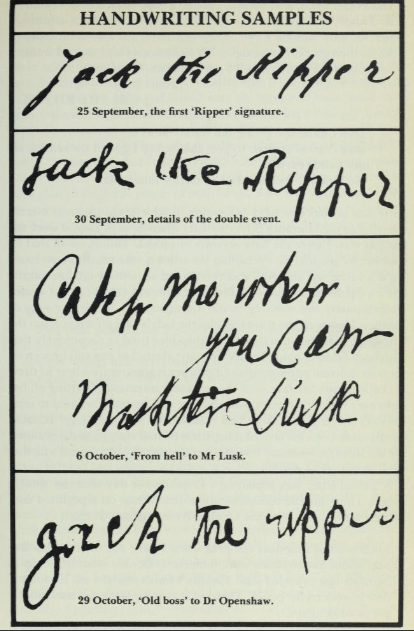 HANDWRITING SAMPLES
Jack the Ripper
25 September, the first 'Ripper' signature.
Jack the Ripper
30 September, details of the double event.
Catch me when
you Can
Mishter Lusk
6 October, 'From hell' to Mr Lusk.
Jack the ripper
29 October, 'Old boss' to Dr Openshaw.